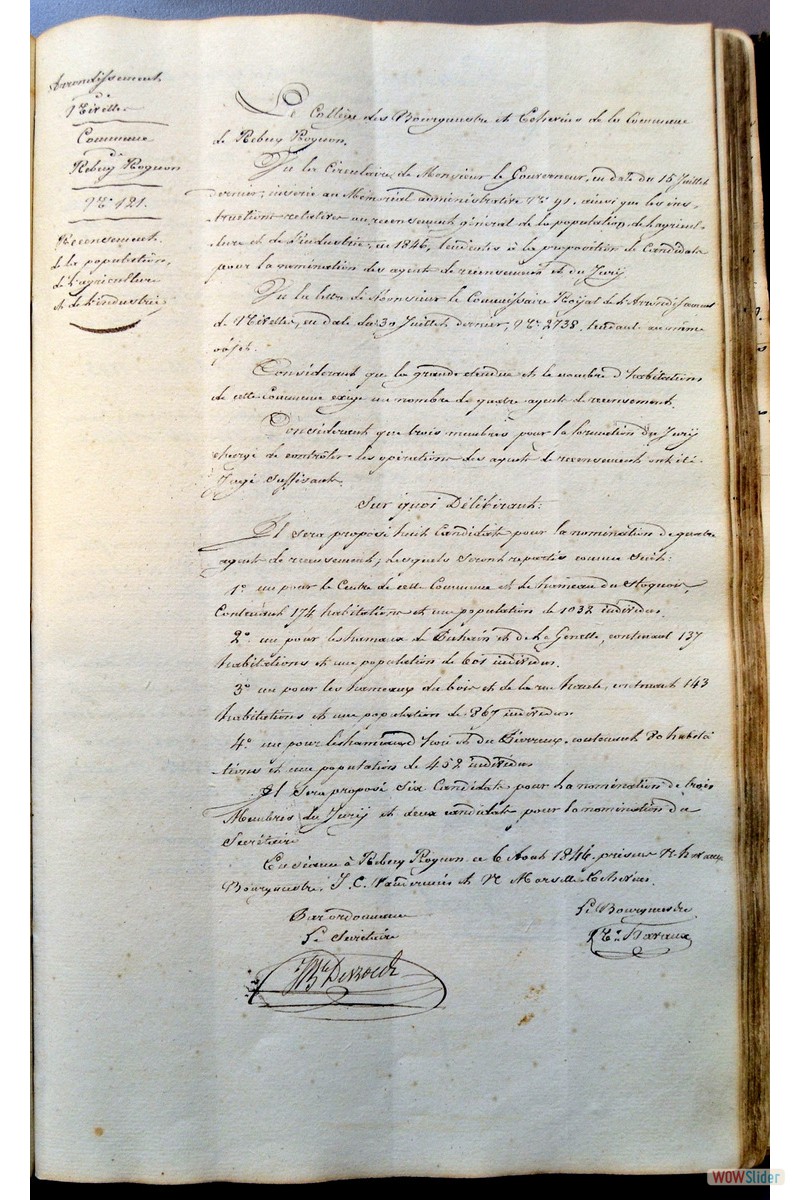 Arrondissement
de
Nivelles
Commune
de
Rebecq Rognon
N° 121.
Recensement
de la population,
de l'agriculture
et de l'industrie
Le Collége des Bourgmestre et Echevins de la Commune
de Rebecq Rognon.
Vu la Circulaire de Monsieur le Gouverneur, en date du 15 Juillet
dernier, inserée au Mémorial administrative N° 91, ainsi que les ins-
tructions relatives au recensement général de la population, de l'agricul-
ture et de l'industrie, en 1846, tendantes à la proposition de Candidats
pour la nomination des agents de recensement et du Jury
Vu la lettre de Monsieur le Commissaire Royal de l'Arrondissement
de Nivelles, en date du 30 Juillet dernier, N° 2738. tendant au même
objet.
Considérant que la grande étendue et le nombre d'habitations
de cette Commune exige un nombre de quatre agents de recensement.
Considérant que trois membres pour la formation du Jury
chargé de contrôler les opérations des agents de recensement ont été
jugé suffisant.
Sur quoi Délibérant:
Il sera proposé huit Candidats pour la nomination de quatre
agents de recensement, lesquels seront repartis comme suit:
1° un pour le Centre de cette Commune et le hameau du Stoquois,
Contenant 174 habitations et une population de 1032 individus.
2° un pour les hamaux de et de la Genette, contenant 137
habitations et une population de 601 individus.
3° un pour les hameaux du bois et de la rue haute, contenant 143
habitations et une population de 867 individus
4° un pour les hameaux d'hou et du, contenant 80 habita
tions et une population de 452 individus
Il sera proposé six Candidats pour la nomination de trois
Membres du Jury et deux candidats pour la nomination du
Secrétaire
En séance à Rebecq Rognon ce 6 Aout 1846. présens
Bourgmestre, J. C. et Echevins.
Par ordonnance
Le Secrétaire
Le Bourgmestre
WOWSlider